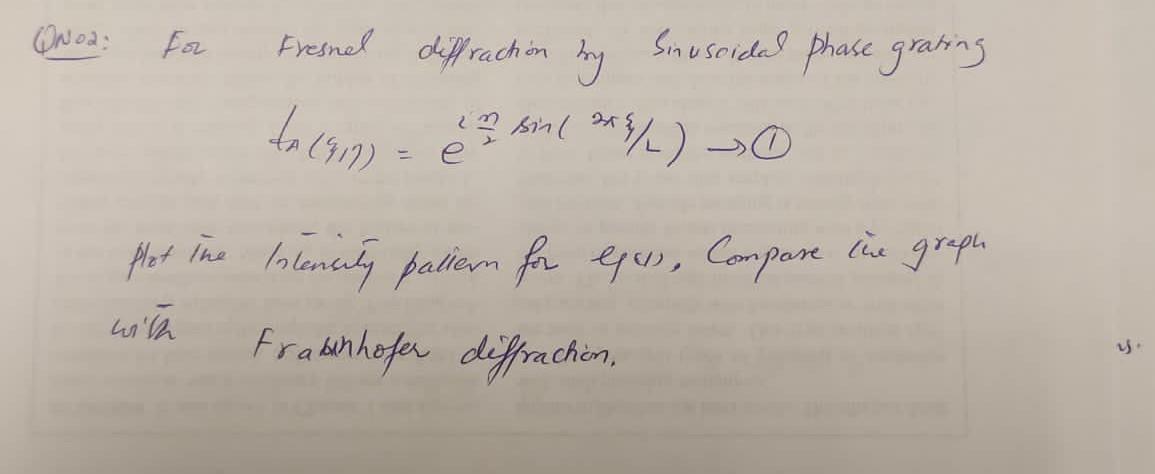 QN02: For Fresnel diffraction by Sinusoidal phase grating
t_A(ξ,η) = e^{i m/2 sin(2πξ/L)} → ①
plot the Intensity pattern for eq(1), Compare the graph
with Fraunhofer diffraction.